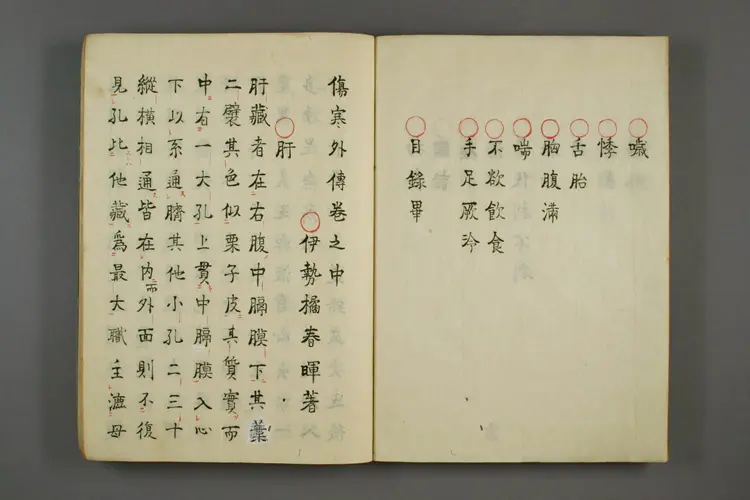 噦
悸
舌胎
胸腹滿
喘
不欲飲食
手足厥冷
目錄畢
傷寒外傳卷之中
伊勢橘春暉著
肝
肝藏者在右腹中膈膜下其葉
二襞其色似栗子皮其質實而
中右一大孔上貫中膈膜入心
下以系通臍其他小孔二三十
縱橫相通皆在内而外面則不復
見孔比他藏爲最大職主漉母